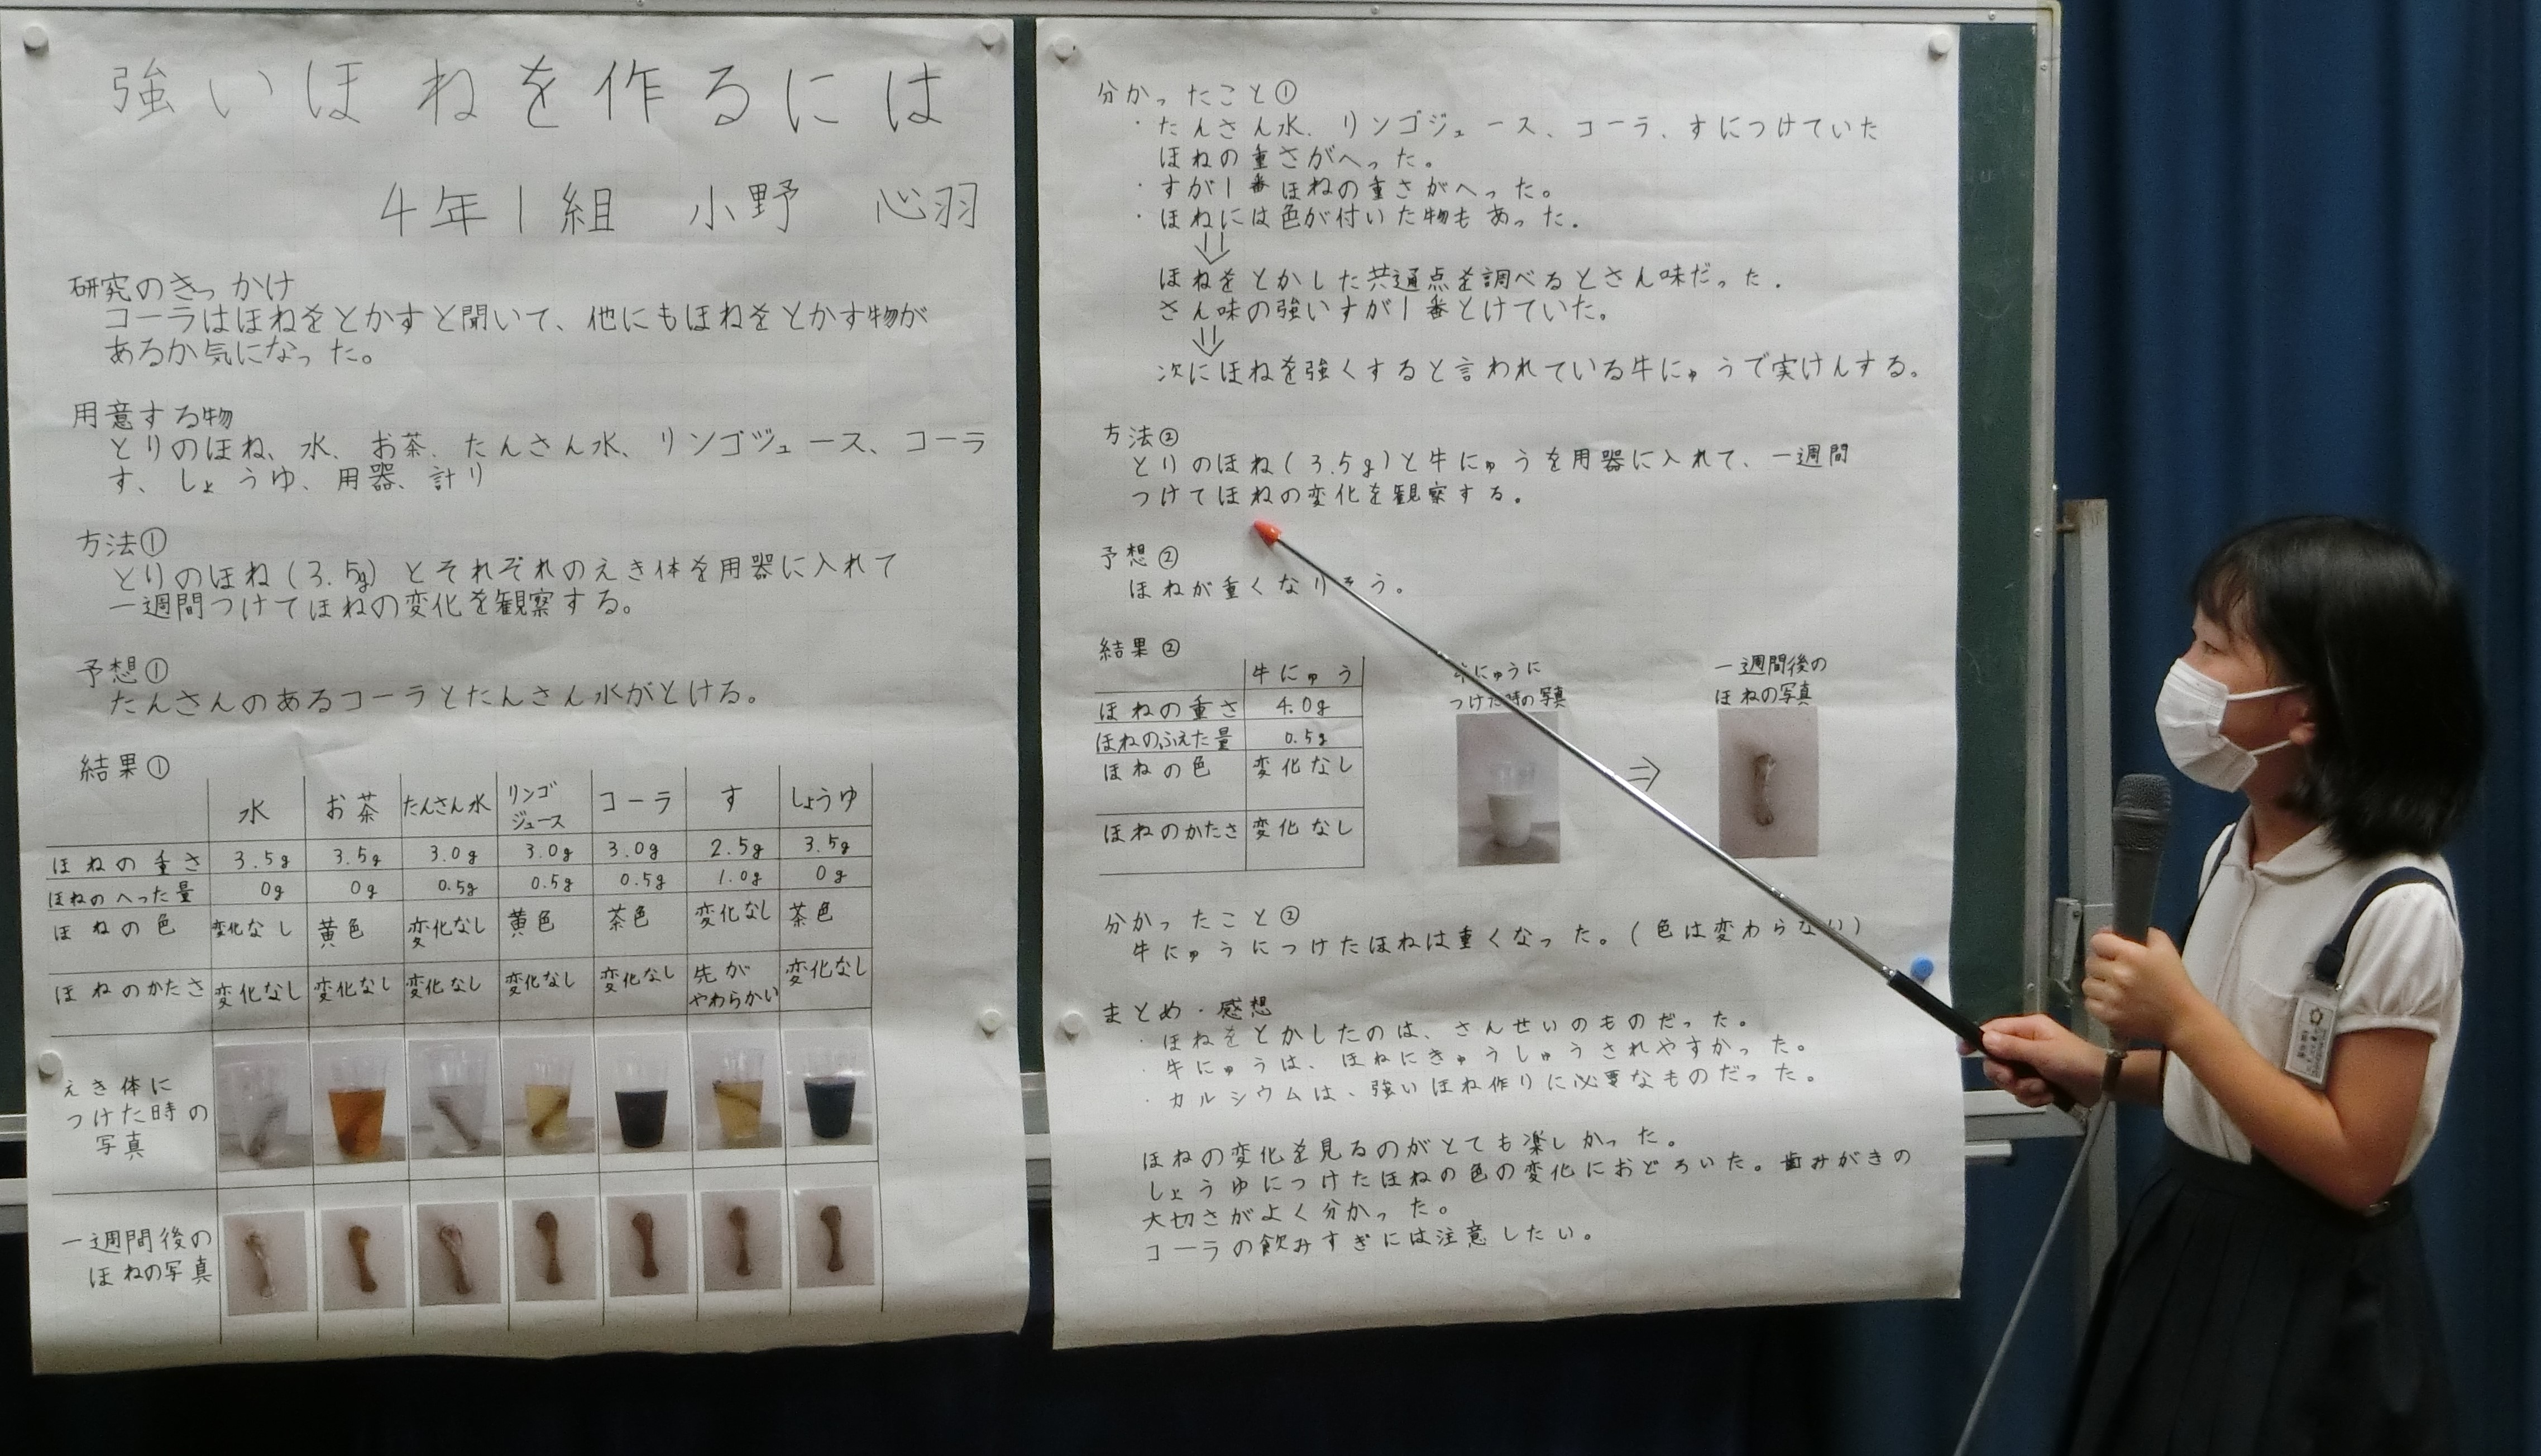 強いほねを作るには
4年1組 小野 心羽
研究のきっかけ
コーラはほねをとかすと聞いて、他にもほねをとかす物が
あるか気になった。
用意する物
とりのほね、水、お茶、たんさん水、リンゴジュース、コーラ
す、しょうゆ、用器、計り
方法①
とりのほね(3.5g)とそれぞれのえき体を用器に入れて
一週間つけてほねの変化を観察する。
予想①
たんさんのあるコーラとたんさん水がとける。
結果①
水 お茶 たんさん水 リンゴジュース コーラ す しょうゆ
ほねの重さ 3.5g 3.5g 3.0g 3.0g 3.0g 2.5g 3.5g
ほねのへった量 0g 0g 0.5g 0.5g 0.5g 1.0g 0g
ほねの色 変化なし 黄色 変化なし 黄色 茶色 変化なし 茶色
ほねのかたさ 変化なし 変化なし 変化なし 変化なし 変化なし 先がやわらかい 変化なし
えき体に
つけた時の
写真
一週間後の
ほねの写真
分かったこと①
・たんさん水、リンゴジュース、コーラ、すにつけていた
ほねの重さがへった。
・すが1番ほねの重さがへった。
・ほねには色が付いた物もあった。
⇓
ほねをとかした共通点を調べるとさん味だった。
さん味の強いすが1番とけていた。
⇓
次にほねを強くすると言われている牛にゅうで実けんする。
方法②
とりのほね(3.5g)と牛にゅうを用器に入れて、一週間
つけてほねの変化を観察する。
予想②
ほねが重くなりそう。
結果②
牛にゅう
ほねの重さ 4.0g
ほねのふえた量 0.5g
ほねの色 変化なし
ほねのかたさ 変化なし
牛にゅうに
つけた時の写真
⇒
一週間後の
ほねの写真
分かったこと②
牛にゅうにつけたほねは重くなった。(色は変わらない)
まとめ・感想
・ほねをとかしたのは、さんせいのものだった。
・牛にゅうは、ほねにきゅうしゅうされやすかった。
・カルシウムは、強いほね作りに必要なものだった。
ほねの変化を見るのがとても楽しかった。
しょうゆにつけたほねの色の変化におどろいた。歯みがきの
大切さがよく分かった。
コーラの飲みすぎには注意したい。